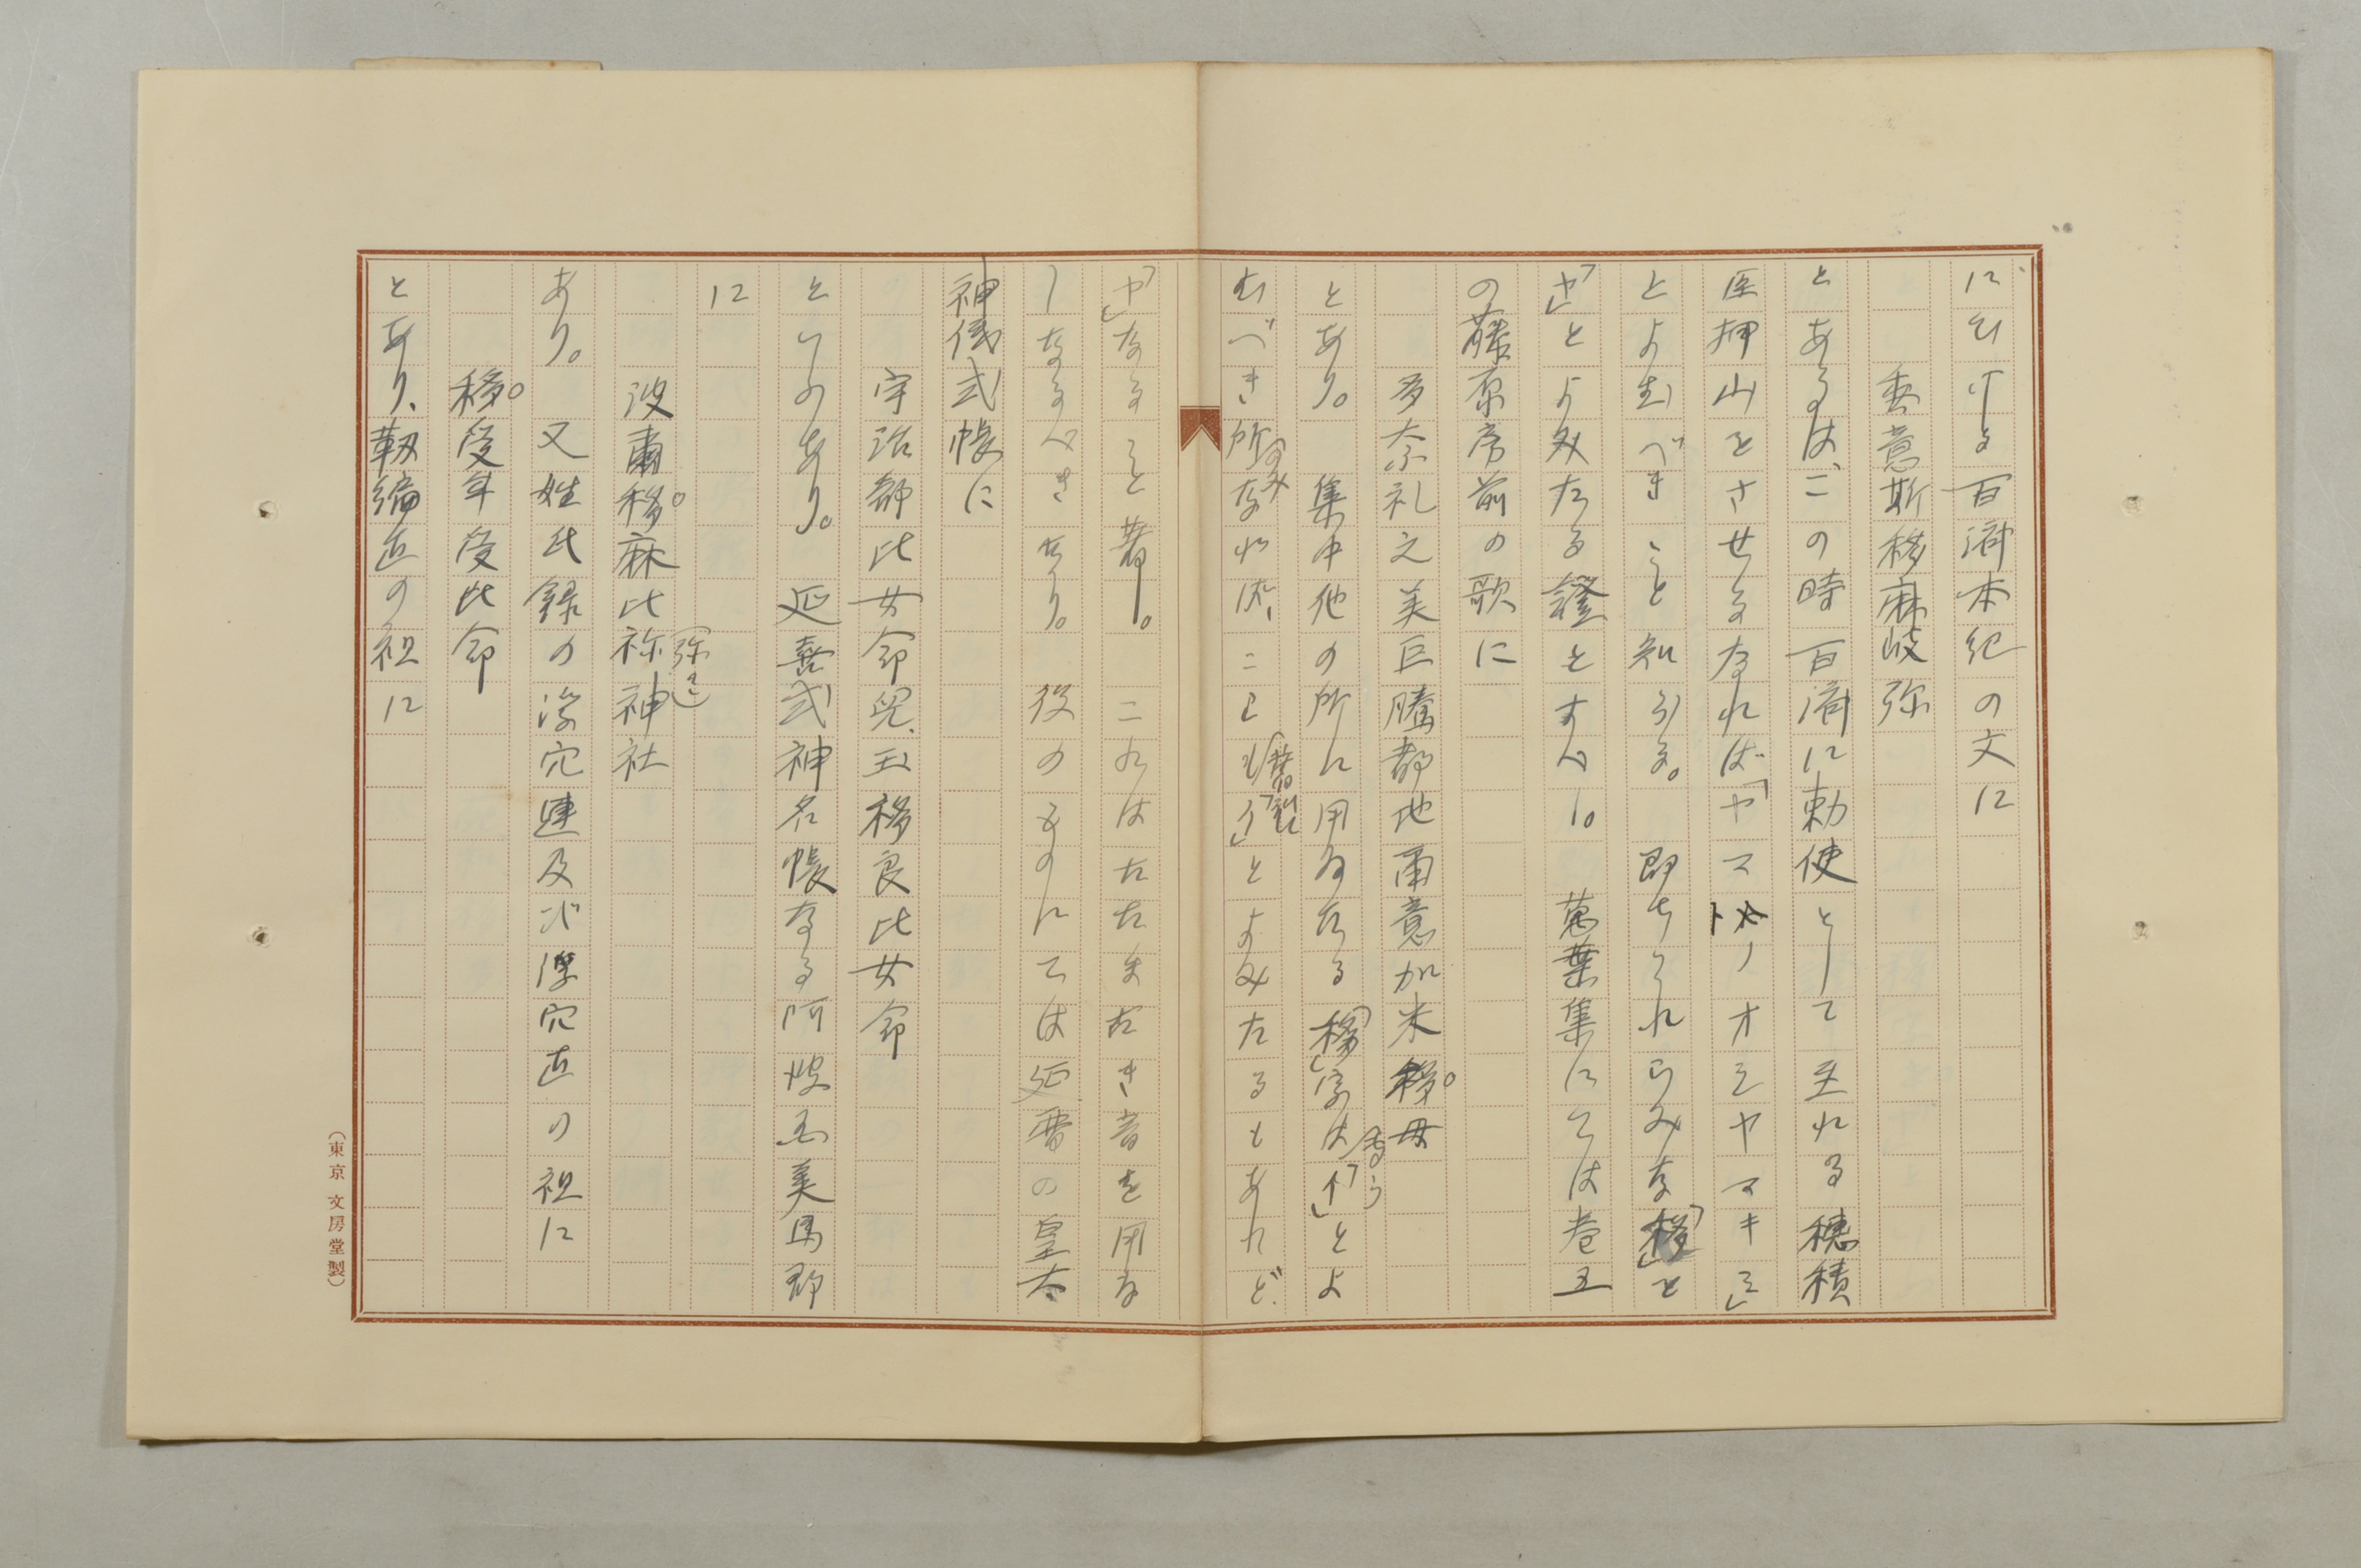 にひける百済本紀の文に
委意斯移麻岐弥
とあるは、この時百済に勅使として至れる穂積
臣押山をさせるなれば「ヤマトノオミヤマキミ」
とよむべきこと知らる。即ちこれらみな「移」を
「ヤ」とよみたる證とすべし。萬葉集にては巻五
の藤原房前の歌に
多奈礼之美巨騰都地爾意加米移母
とあり。集中他の所に用ゐたる「移」字は「イ」とよ
むべき所のみなれば、こも「イ」とよみたるもあれど、
「ヤ」なること著し。これはたまたま古き音を用ゐ
しなるべきなり。後のものにては延暦の皇太
神儀式帳に
宇治都比女命児、玉移良比女命
といふあり。延喜式神名帳なる阿波国美馬郡
に
波爾移麻比祢神社
（弥を）
あり。又姓氏録の浮穴連及び浮穴直の祖に
移受牟受比命
とあり、靱編直の祖に
（東京 文房堂製）